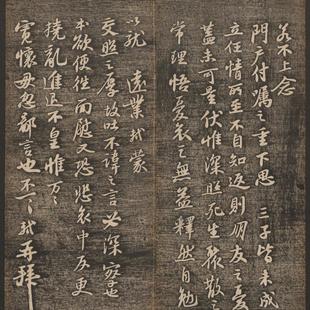 若不上念
門戶付囑之重下思三子皆未成
立任情所至不自知返則朋友之憂
蓋未可量伏惟深照死生聚散之
常理悟憂哀之無益釋然自勉
以就遠業軾蒙
交照之厚故吐不諱之言必深察也
本欲便往面慰又恐悲哀中反更
撓亂進退不皇惟萬萬
寬懷毋忽鄙言也不一一軾再拜